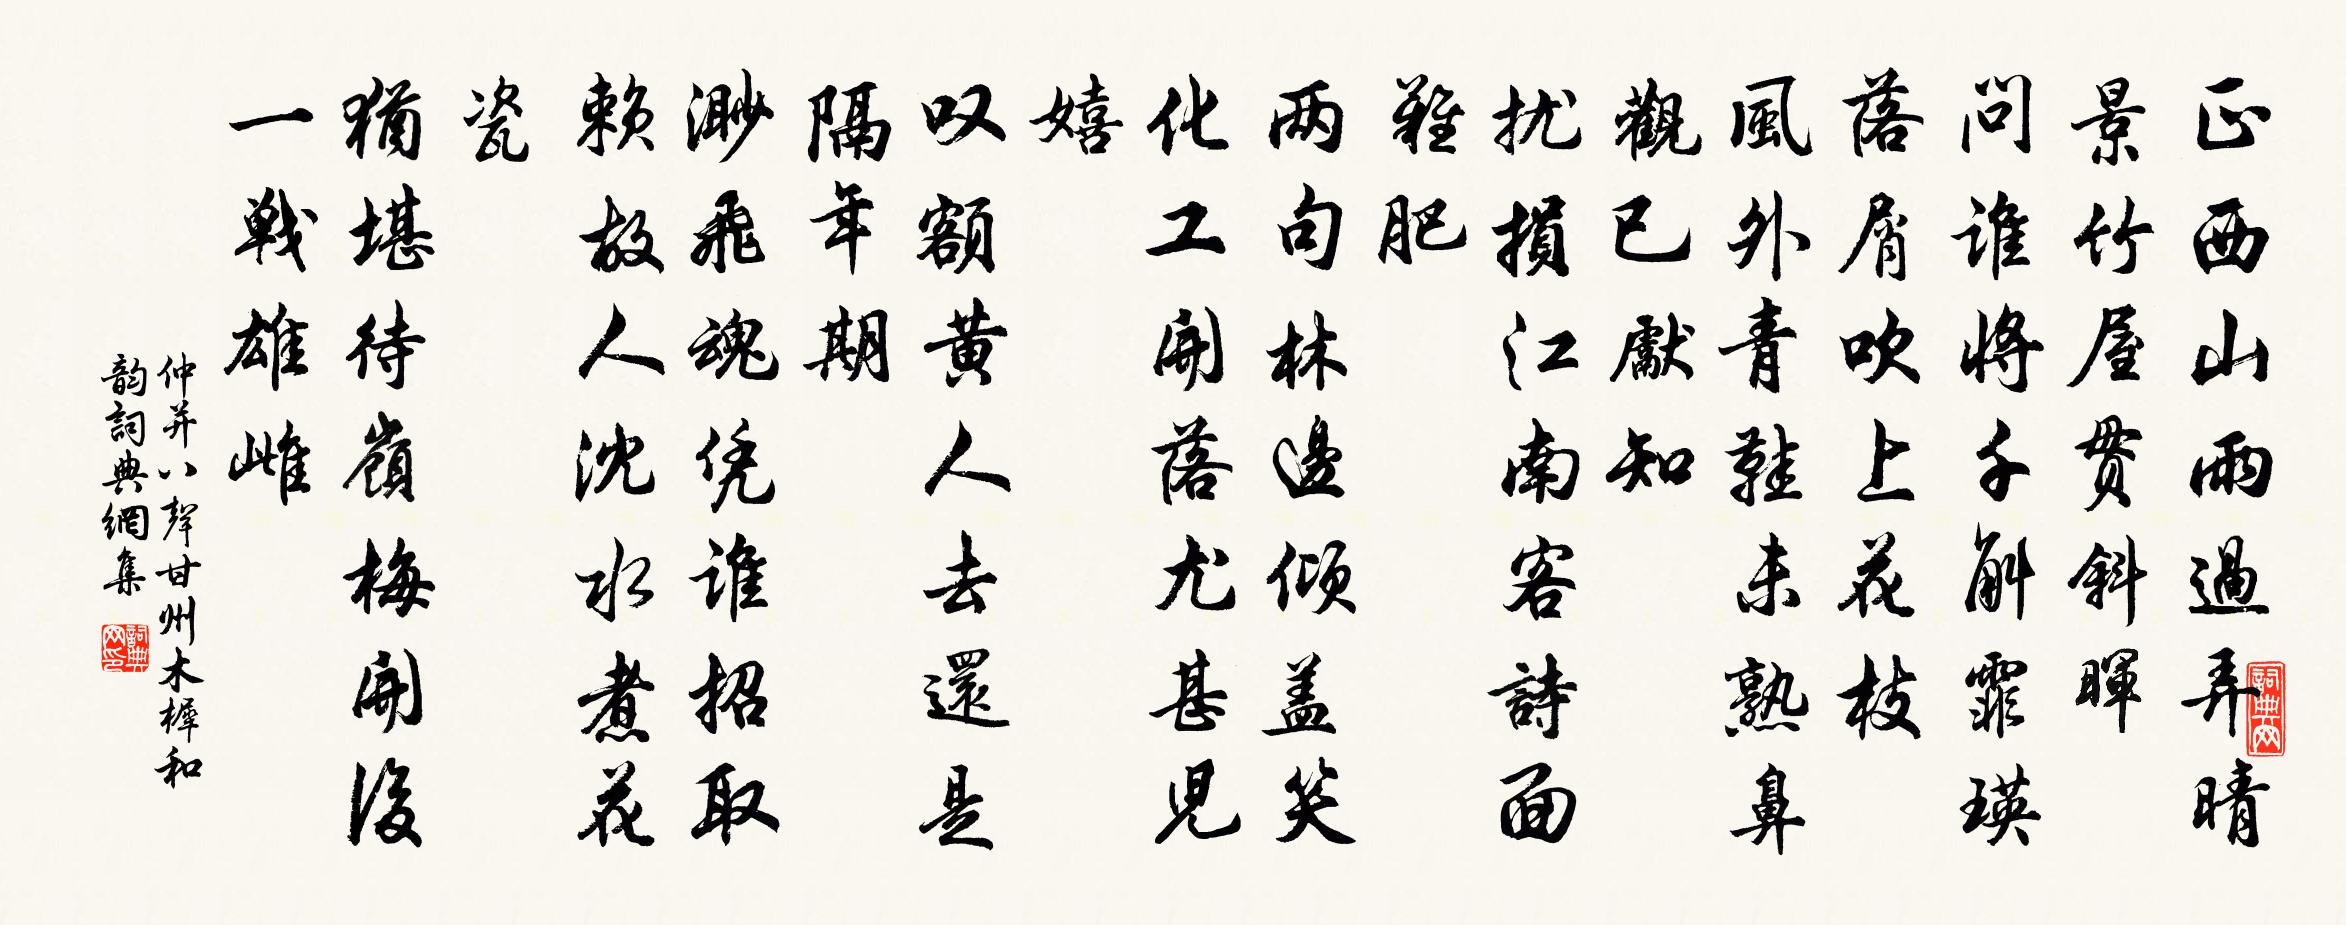 正西山雨過弄晴
景竹屋貫斜暉
問誰將千斛霏瑛
落屑吹上花枝
風外青鞋未熟鼻
觀已獻知
扰損江南客詩面
難肥
兩句林邊傾盖笑
化工開落尤甚兒
嬉
叹額黄人去還是
隔年期
渺飛魂凭誰招取
賴故人沈水煮花
瓷
猶堪待嶺梅開後
一戰雄雌
仲并八聲甘州木樨和
韵詞典網集
詞典网
詞典网印